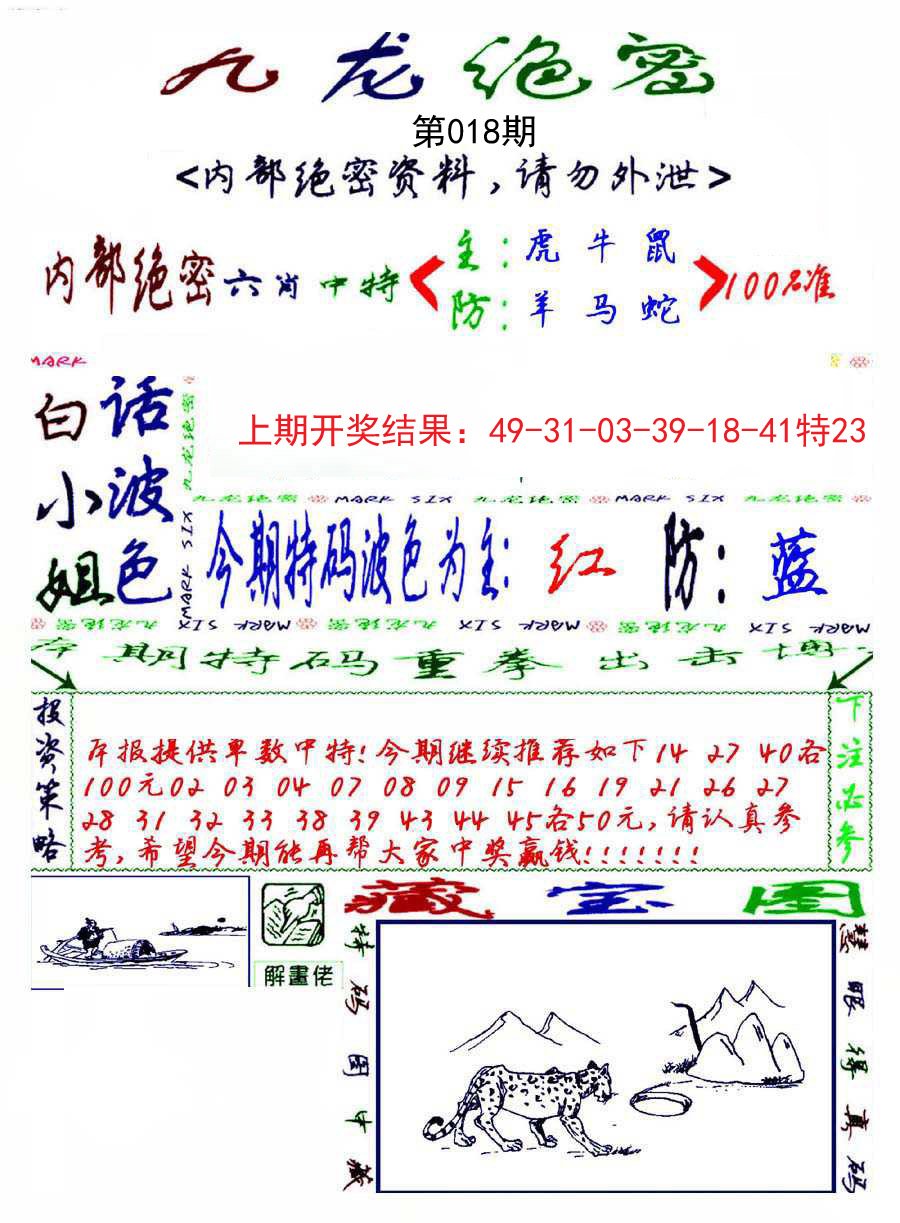 九龙绝密
第018期
<内部绝密资料,请勿外泄>
内部绝密六肖中特
主:虎牛鼠
防:羊马蛇
100%准
MARK
白话
小波
姐色
九龙绝密
MARK SIX
上期开奖结果：49-31-03-39-18-41特23
九龙绝密 MARK SIX 九龙绝密 MARK SIX 九龙绝密
今期特码波色为主:红 防:蓝
九龙绝密 MARK SIX 九龙绝密 MARK SIX 九龙绝密 MARK SIX
期特码重拳出击
投资策略
本报提供单数中特!今期继续推荐如下14 27 40各
100元02 03 04 07 08 09 15 16 19 21 26 27
28 31 32 33 38 39 43 44 45各50元,请认真参
考,希望今期能再帮大家中奖赢钱!!!!!!!
下注必参
解畫佬
藏宝图
特码图中藏
慧眼得真码